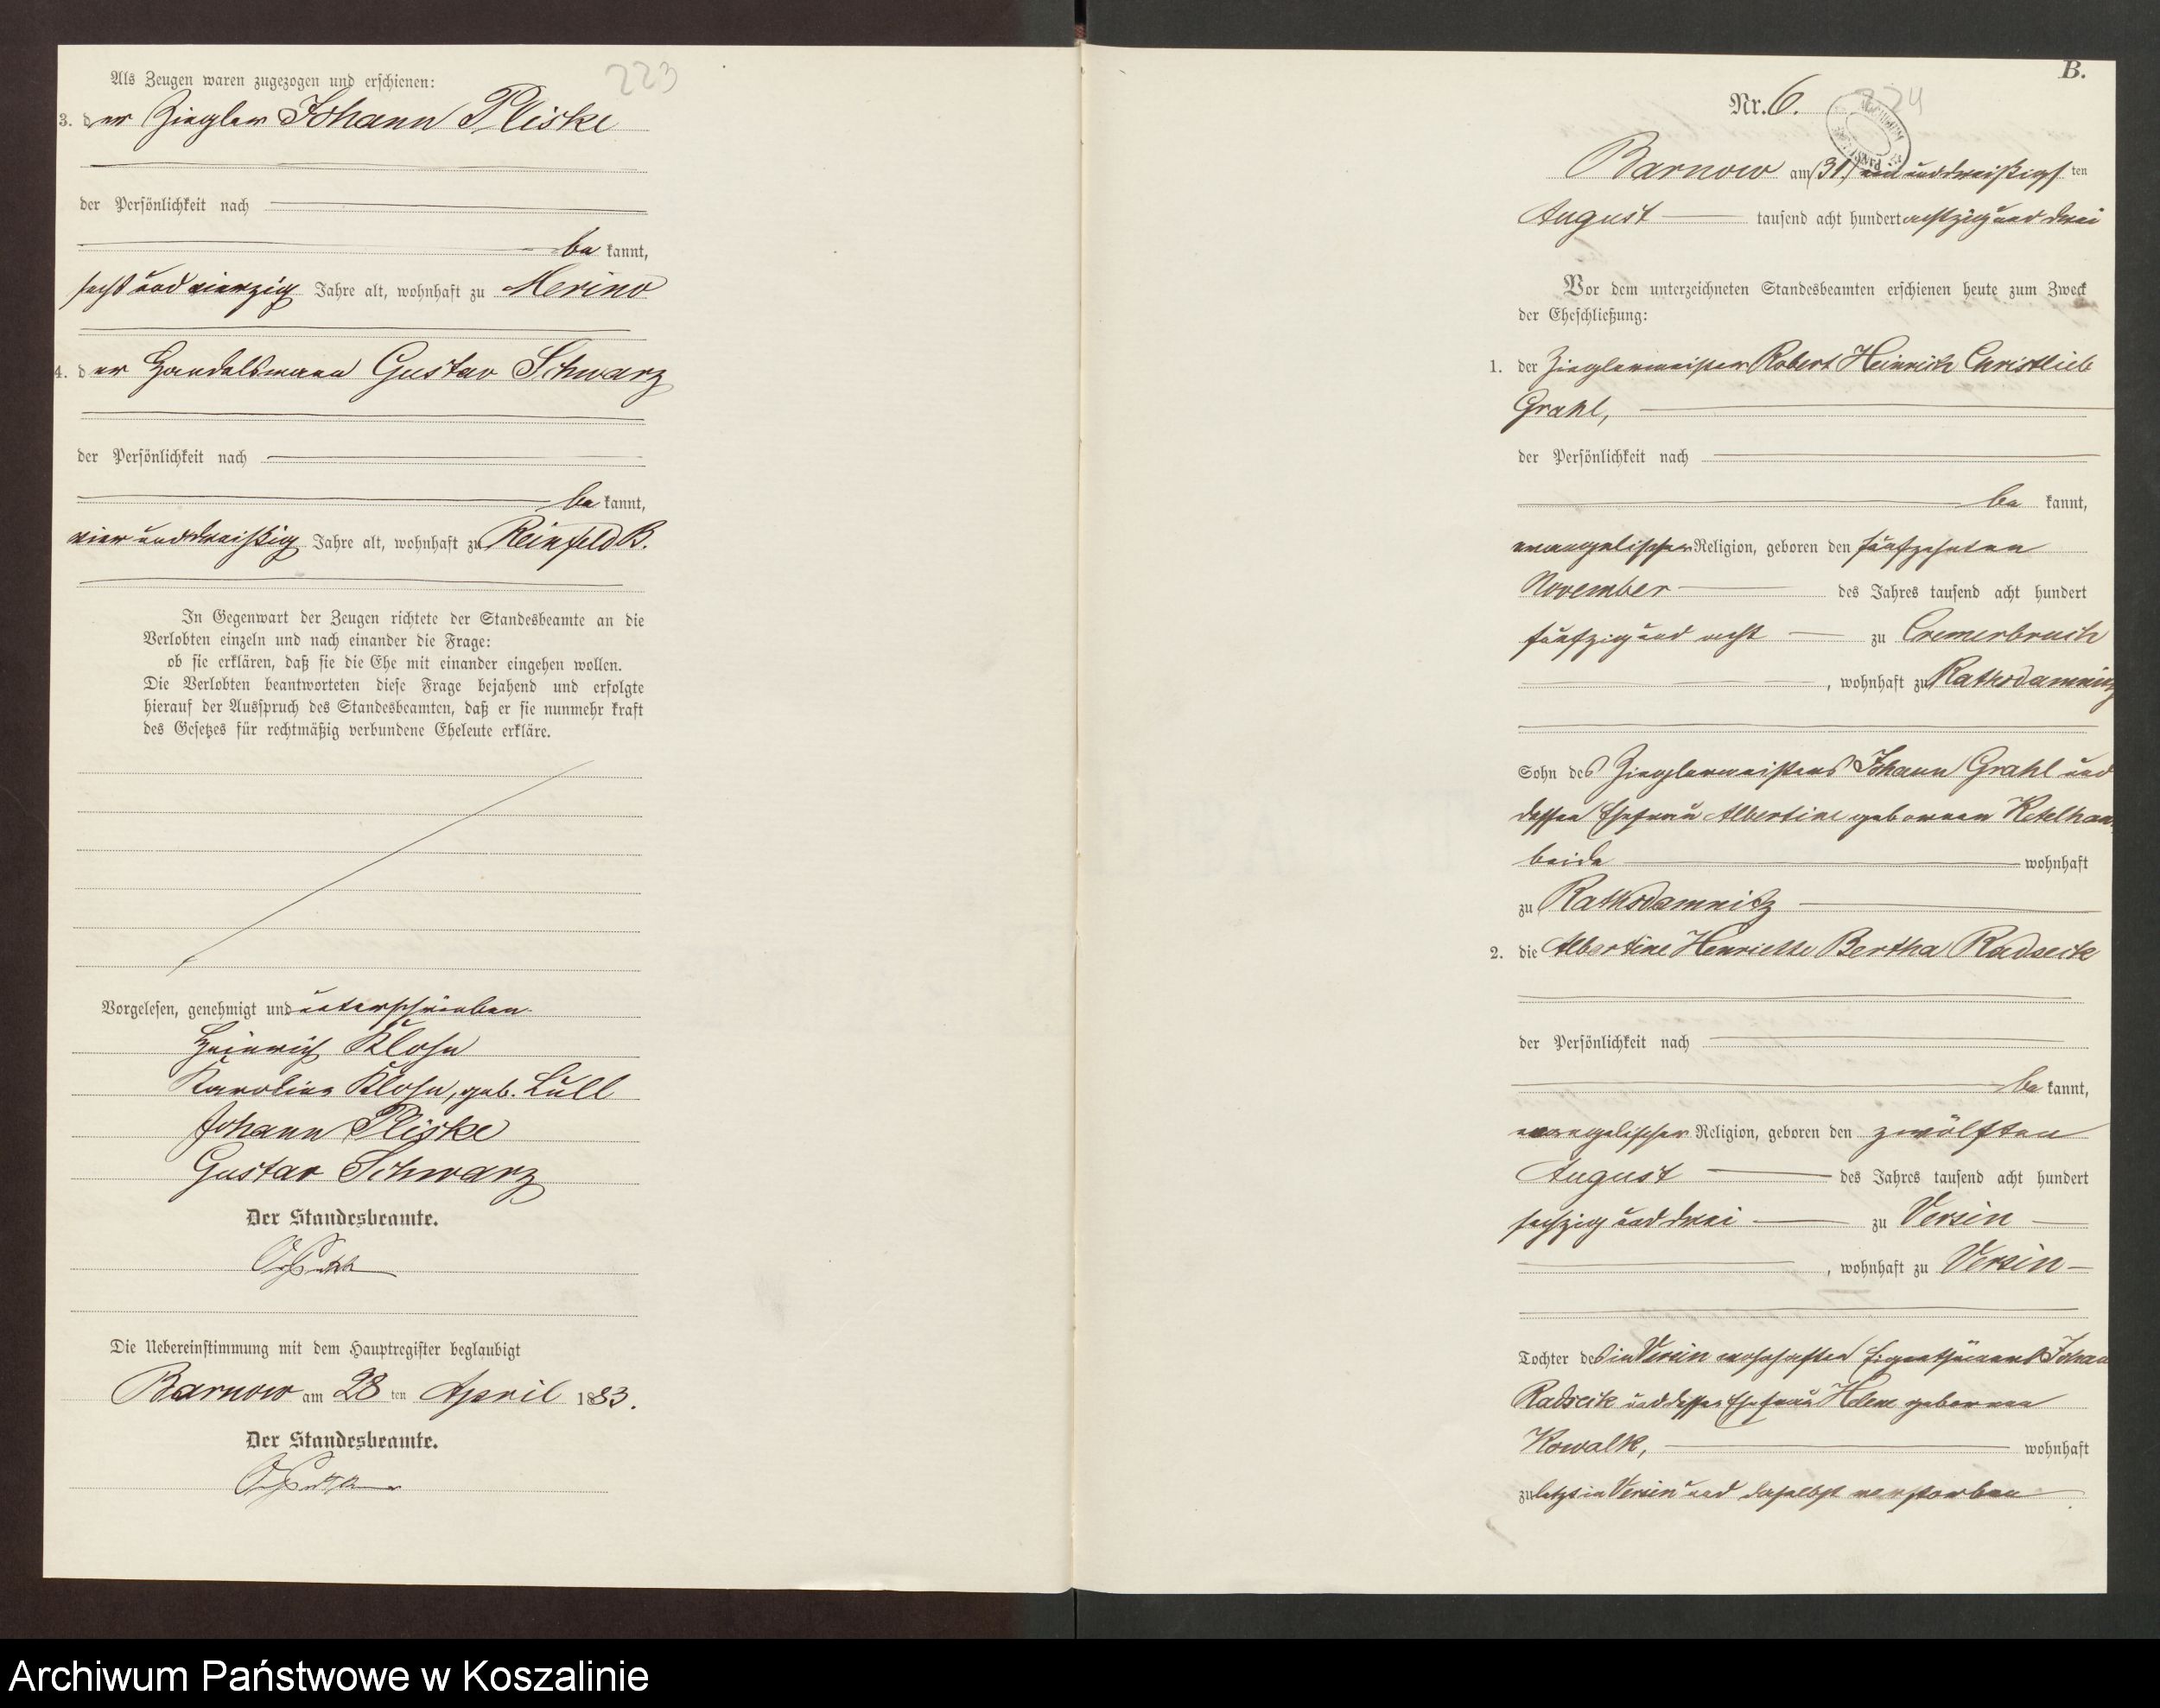 Als Zeugen waren zugezogen und erschienen:
223
3. der Ziegler Johann Pliske
der Persönlichkeit nach
be kannt,
sechs und vierzig Jahre alt, wohnhaft zu Merino
4. der Handelsmann Gustav Schwarz
der Persönlichkeit nach
be kannt,
vier und dreißig Jahre alt, wohnhaft zu Reinfeld B.
In Gegenwart der Zeugen richtete der Standesbeamte an die
Verlobten einzeln und nach einander die Frage:
ob sie erklären, daß sie die Ehe mit einander eingehen wollen.
Die Verlobten beantworteten diese Frage bejahend und erfolgte
hierauf der Ausspruch des Standesbeamten, daß er sie nunmehr kraft
des Gesetzes für rechtmäßig verbundene Eheleute erkläre.
Vorgelesen, genehmigt und unterschrieben
Heinrich Klose
Karoline Klose, geb. Lüll
Johann Pliske
Gustav Schwarz
Der Standesbeamte.
Die Uebereinstimmung mit dem Hauptregister beglaubigt
Barnow am 28 ten April 1883.
Der Standesbeamte.
B.
Nr. 6.
224
Barnow am (31) ein und dreißigs ten
August tausend acht hundert achtzig und drei
Vor dem unterzeichneten Standesbeamten erschienen heute zum Zweck
der Eheschließung:
1. der Zieglermeister Robert Heinrich Christlieb
Grahl,
der Persönlichkeit nach
be kannt,
evangelischer Religion, geboren den fünfzehnten
November des Jahres tausend acht hundert
fünfzig und acht zu Cremerbruch
, wohnhaft zu Rathsdamnitz
Sohn des Zieglermeisters Johann Grahl und
dessen Ehefrau Albertine geborenen
beide wohnhaft
zu Rathsdamnitz
2. die Albertine Henriette Bertha Radseck
der Persönlichkeit nach
be kannt,
evangelischer Religion, geboren den zwölften
August des Jahres tausend acht hundert
sechzig und drei zu Versin
, wohnhaft zu Versin
Tochter des in Versin wohnhaften Eigenthümers Johann
Radseck und dessen Ehefrau Helene geborenen
Kowalk, wohnhaft
zuletzt in Versin und daselbst verstorben
Archiwum Państwowe w Koszalinie